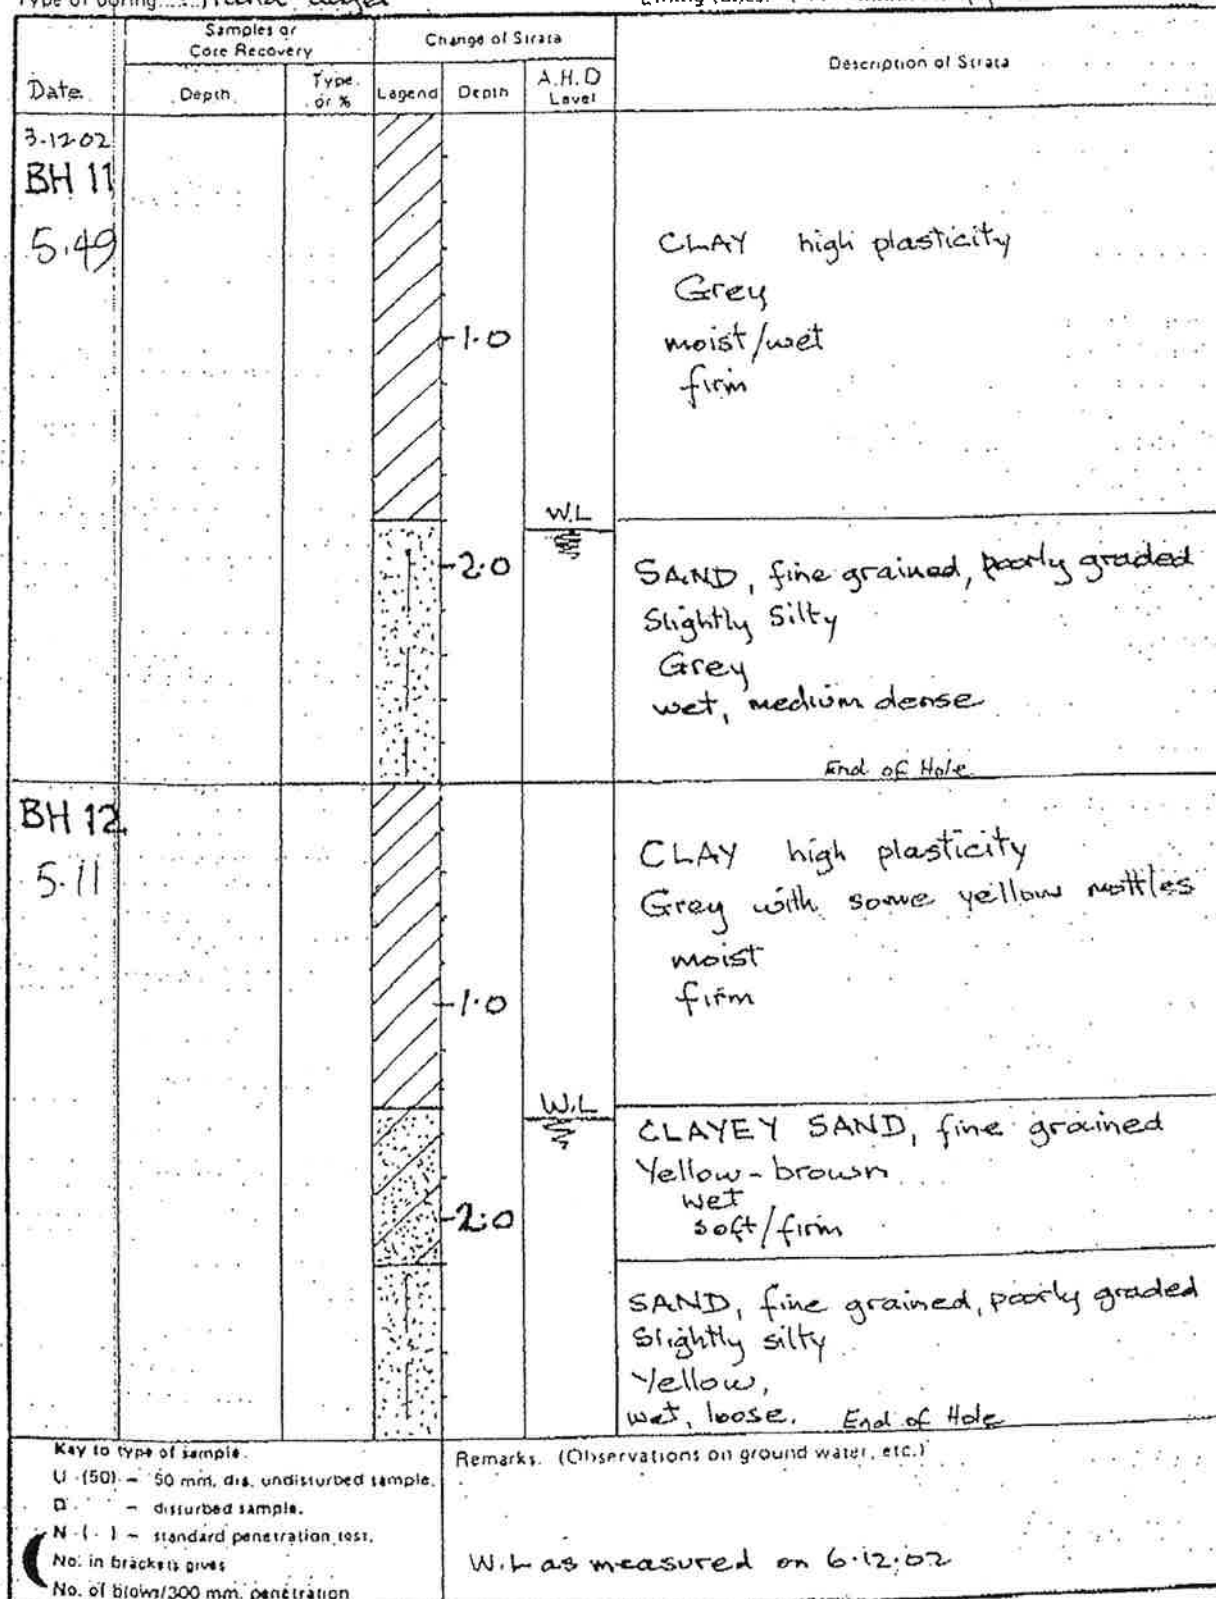 Type of boring...... Hand auger
Samples or
Core Recovery
Change of Strata
Description of Strata
Date
Depth
Type
or %
Legend
Depth
A.H.D
Level
3.12.02
BH 11
5.49
CLAY high plasticity
Grey
moist/wet
firm
1.0
W.L
2.0
SAND, fine grained, poorly graded
Slightly Silty
Grey
wet, medium dense
End of Hole
BH 12
5.11
CLAY high plasticity
Grey with some yellow mottles
moist
firm
1.0
W.L
CLAYEY SAND, fine grained
Yellow-brown
wet
soft/firm
2.0
SAND, fine grained, poorly graded
Slightly silty
Yellow,
wet, loose. End of Hole
Key to type of sample.
U (50) – 50 mm, dia. undisturbed sample.
D – disturbed sample.
N ( ) – standard penetration test.
No. in brackets gives
No. of blows/300 mm. penetration
Remarks. (Observations on ground water, etc.)
W.L as measured on 6.12.02